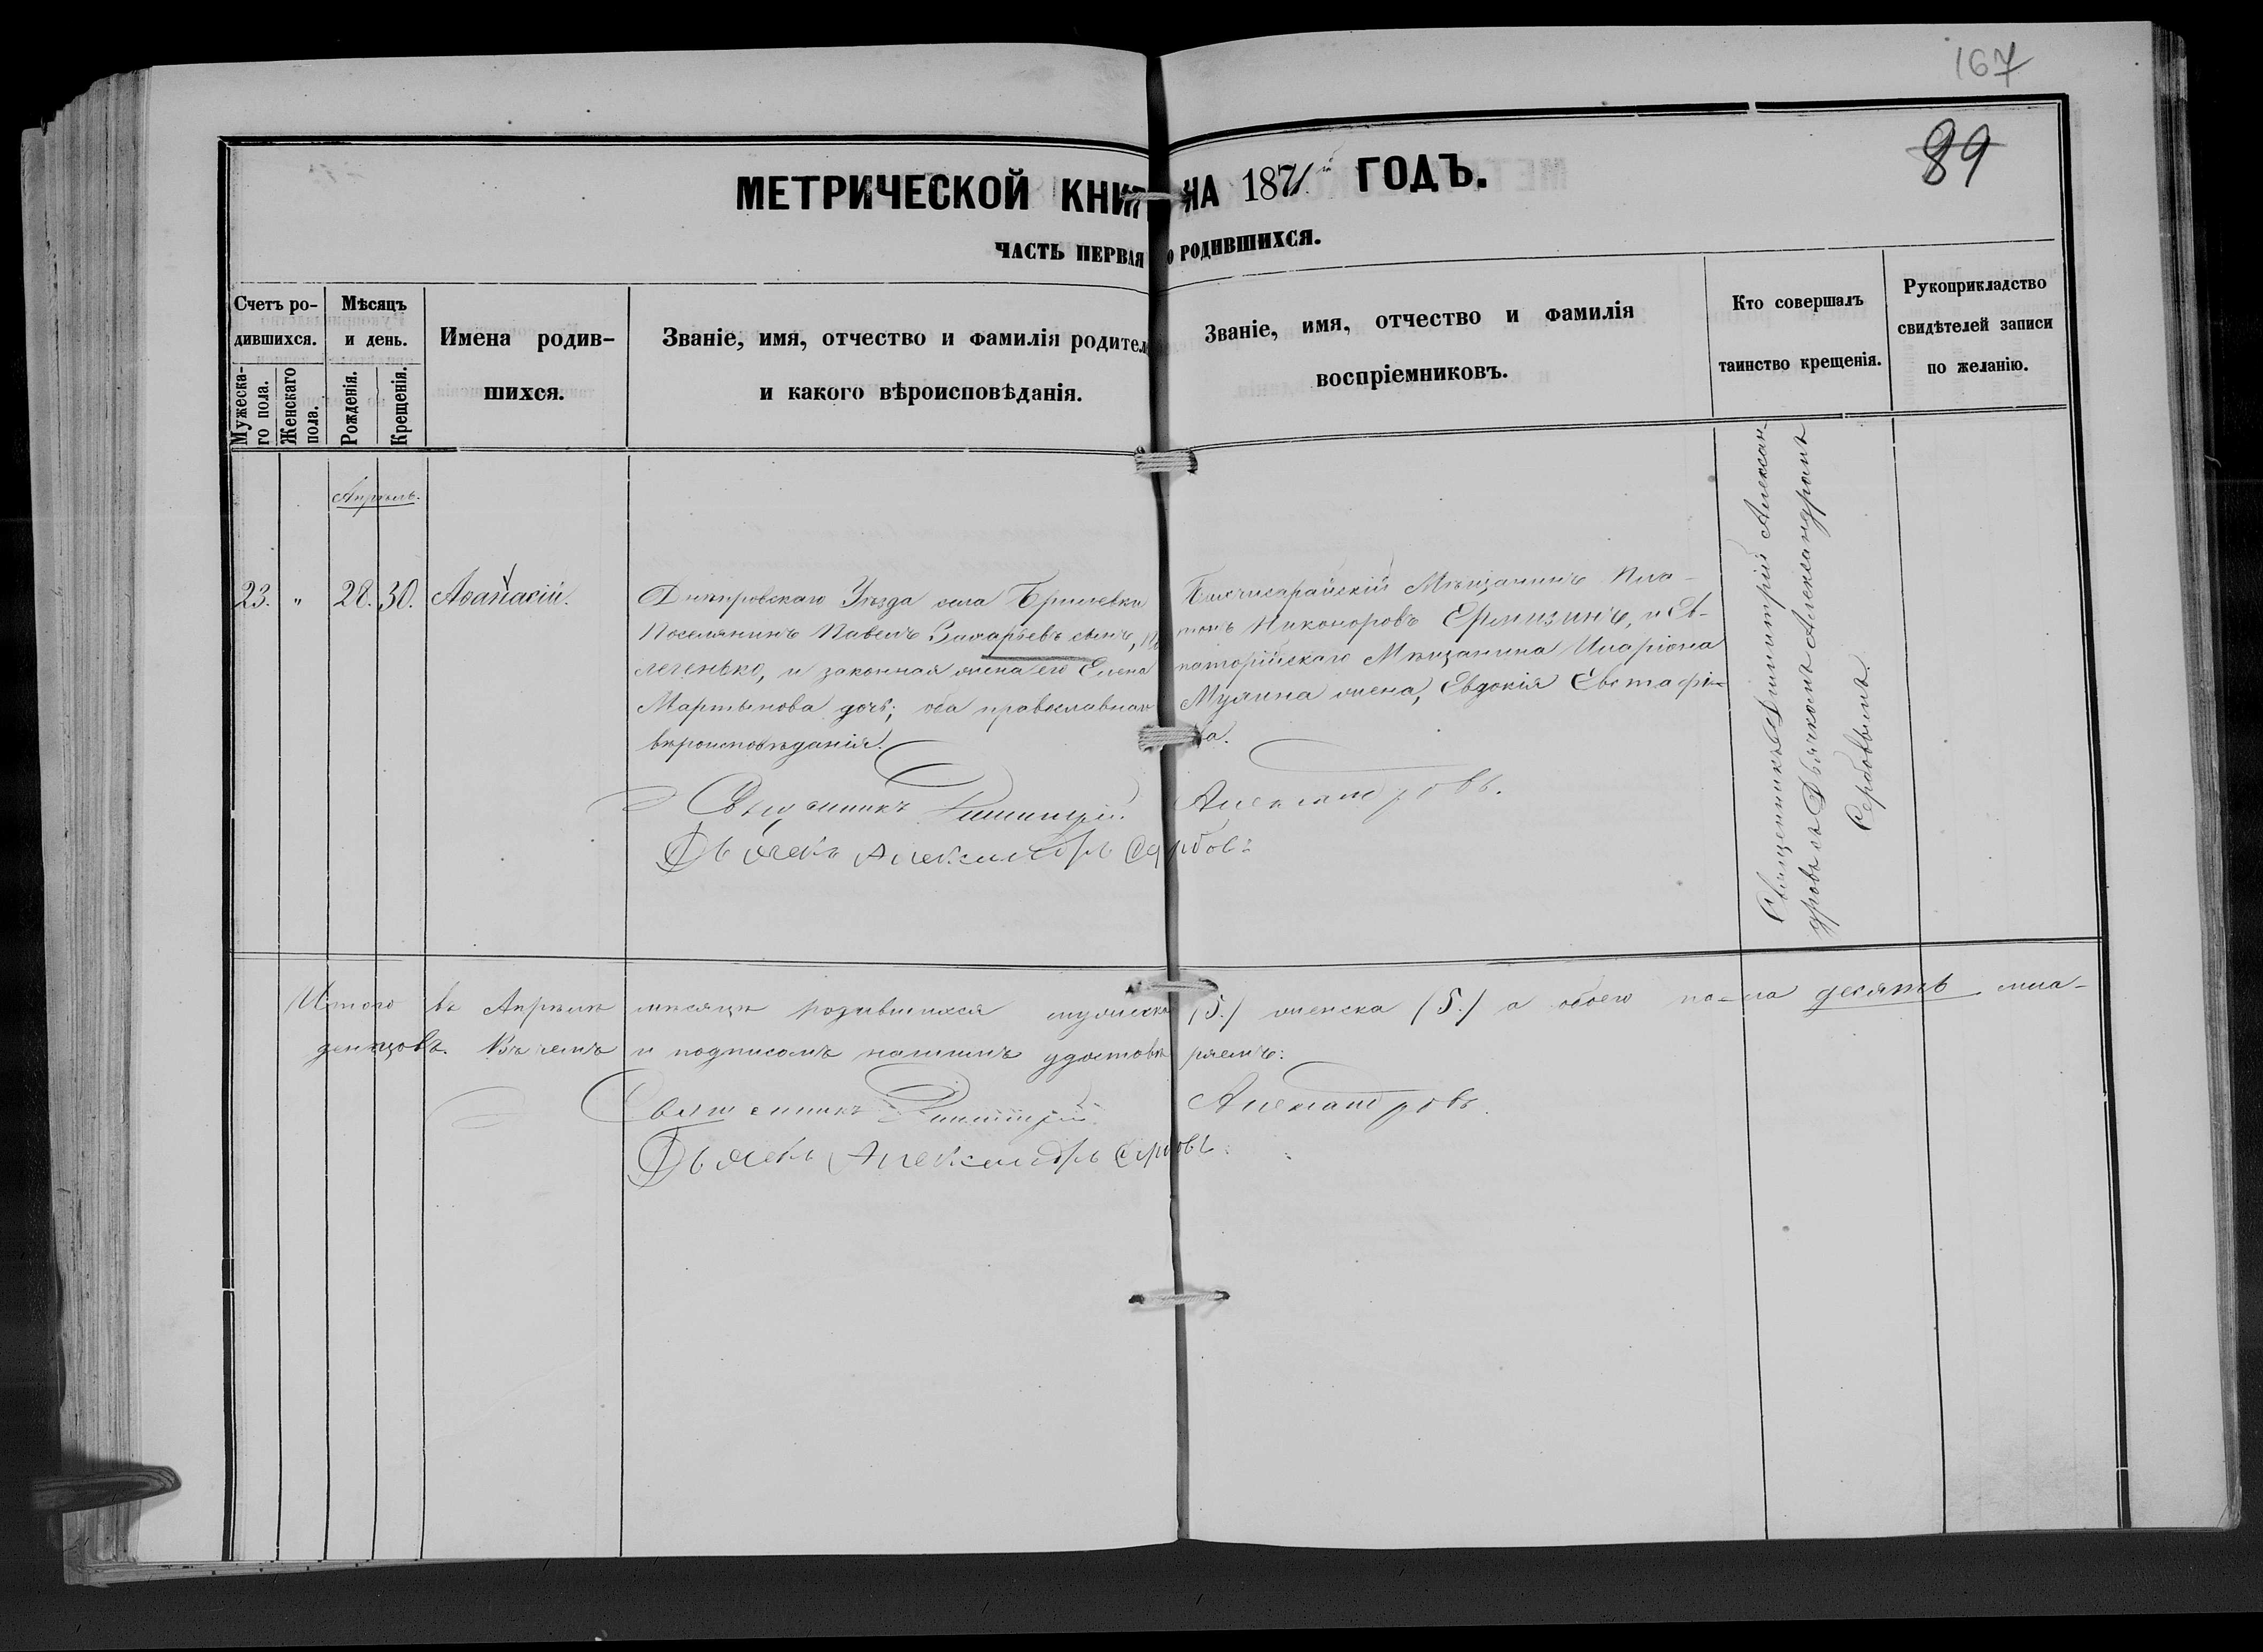 167
89
МЕТРИЧЕСКОЙ КНИГ НА 1871й ГОДЪ.
ЧАСТЬ ПЕРВАЯ О РОДИВШИХСЯ.
Счетъ ро-
дившихся.
Мужеска-
го пола.
Женскаго
пола.
Мѣсяцъ
и день.
Рожденія.
Крещенія.
Имена родив-
шихся.
Званіе, имя, отчество и фамилія родител
и какого вѣроисповѣданія.
Званіе, имя, отчество и фамилія
воспріемниковъ.
Кто совершалъ
таинство крещенія.
Рукоприкладство
свидѣтелей записи
по желанію.
Апрѣль.
23. " 28. 30. Аѳанасій.
Днѣпровскаго Уѣзда села Брилевки
Поселянинъ Павелъ Захарьевъ сынъ,
легенько, и законная жена его Елена
Мартынова дочь; оба православнаго
вѣроисповѣданія.
Бахчисарайскій Мѣщанинъ Пла-
тонъ Никоноровъ и Ев-
паторійскаго Мѣщанина Иларіона
Мулина жена, Евдокія Евстафіе-
ва.
Священникъ Димитрій Алексан-
дровъ съ Дьячкомъ Александромъ
Сербовымъ.
Священникъ Димитрій Александровъ.
Дьячекъ Александръ Сербовъ
Итого въ Апрѣлѣ мѣсяцѣ родившихся мужеска (5.) женска (5.) а обоего по-ла десять мла-
денцовъ. Въ чемъ и подписомъ нашимъ удостовѣряемъ:
Священникъ Димитрій Александровъ.
Дьячекъ Александръ Сербовъ